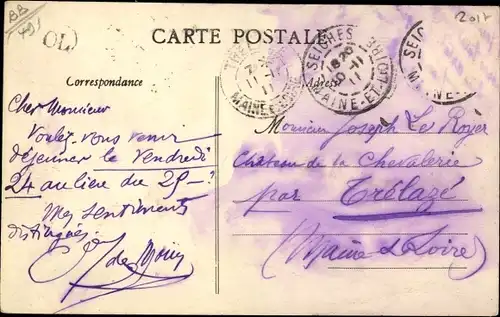 BB
491
20
OL
CARTE POSTALE
SEICHES
18 20
20 -11
11
MAINE-ET-LOIRE
SEICHES
MAINE-ET
7
11
MAINE-ET-LOIRE
Correspondance
Adresse
Cher Monsieur
Voulez-vous venir
déjeuner le Vendredi
24 au lieu du 25-?
Mes sentiments
distingués.
de
Monsieur Joseph Le Royer
Château de la Chevalerie
par Trélazé
(Maine & Loire)